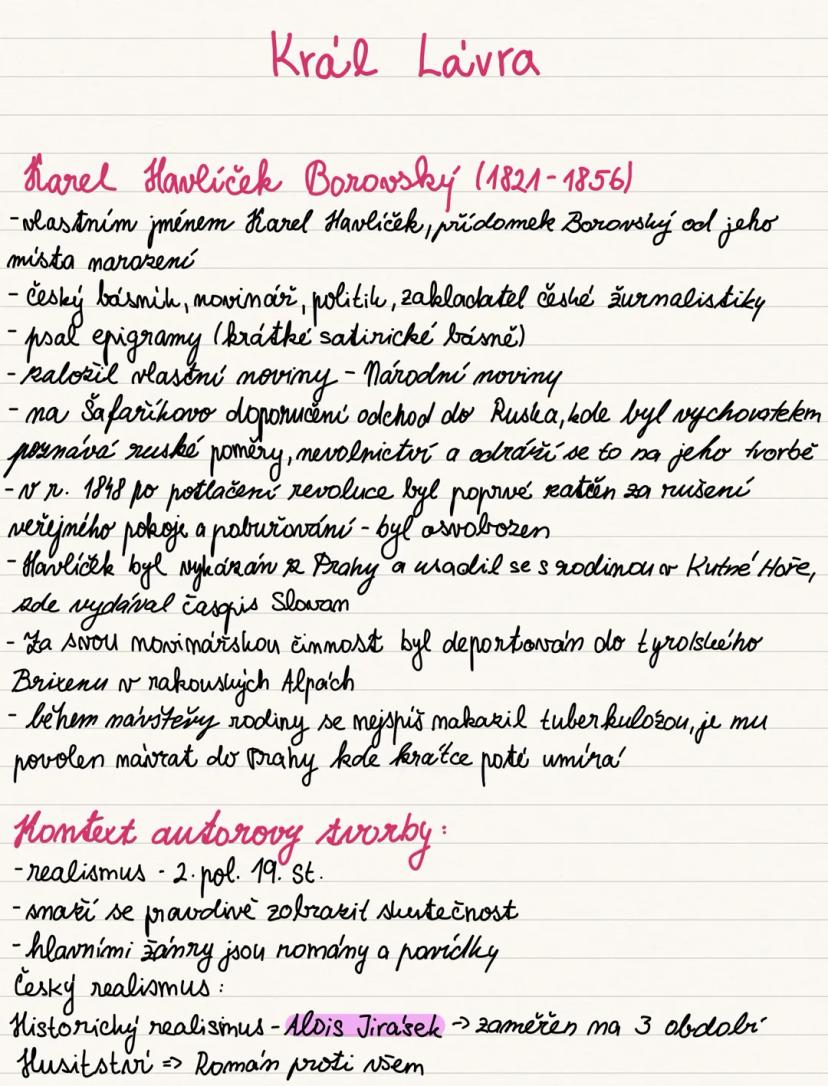 Král Lávra
Karel Havlíček Borovský (1821-1856)
-vlastním jménem Karel Havlíček, přídomek Borovský od jeho
místa narození
- český básník, novinář, politik, zakladatel české žurnalistiky
- psal epigramy (krátké satirické básně)
- založil vlastní noviny - Národní noviny
- na Šafaříkovo doporučení odchod do Ruska, kde byl vychovatelem
poznává ruské poměry, nevolnictví a odráží se to na jeho tvorbě
- v r. 1848 po potlačení revoluce byl poprvé zatčen za rušení
veřejného pokoje a pobuřování - byl osvobozen
- Havlíček byl vykázán z Prahy a usadil se s rodinou v Kutné Hoře,
zde vydával časopis Slovan
- Za svou novinářskou činnost byl deportován do tyrolského
Brixenu v rakouských Alpách
- během návštěvy rodiny se nejspíš nakazil tuberkulózou, je mu
povolen návrat do Prahy kde krátce poté umírá
Kontext autorovy tvorby:
-realismus - 2. pol. 19. st.
-snaží se pravdivě zobrazit skutečnost
-hlavními žánry jsou romány a povídky
Český realismus:
Historický realismus - Alois Jirásek -> zaměřen na 3 období
Husitství => Román proti všem